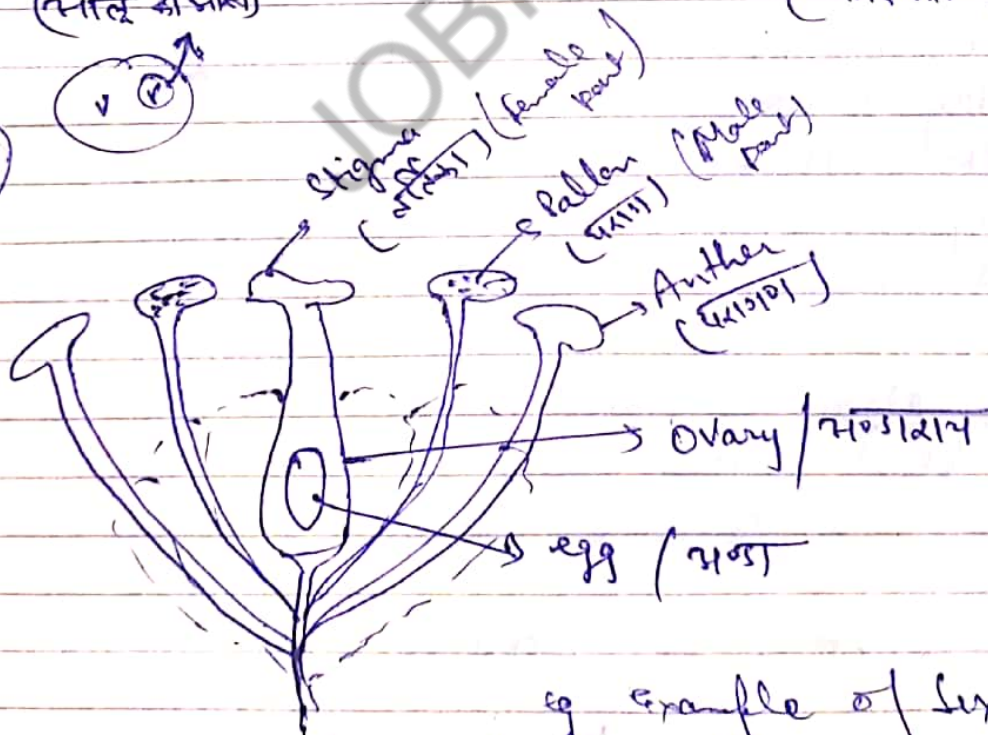 V
JOB
Stigma
(Female part)
Pallon
(पराग)
(Male part)
Anther
(परागण)
Ovary / अण्डाशय
egg / अण्डा
eg example of Sex